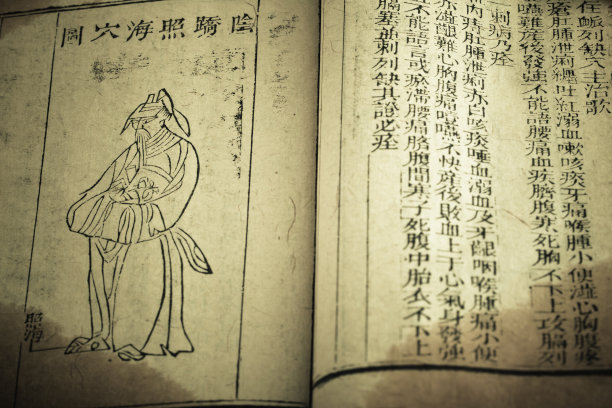 陰蹻照海穴圖
照海
脈列缺穴主治歌
瘡肛腫泄痢纏吐紅溺血嗽咳痰牙痛喉腫小便澁心胸腹疼
噎嚥難產後發強不能語腰痛血疾臍腹寒死胎不下上攻膈列
刺病乃痊
肛腫泄痢赤白咳痰唾血溺血及牙齦咽喉腫痛小便
澁難心胸腹痛噎嚥不快產後敗血上于心氣身發強
不能語言或瘀滯腰痛臍腹間寒子死腹中胎衣不下上
膈塞並刺列缺其證必痊